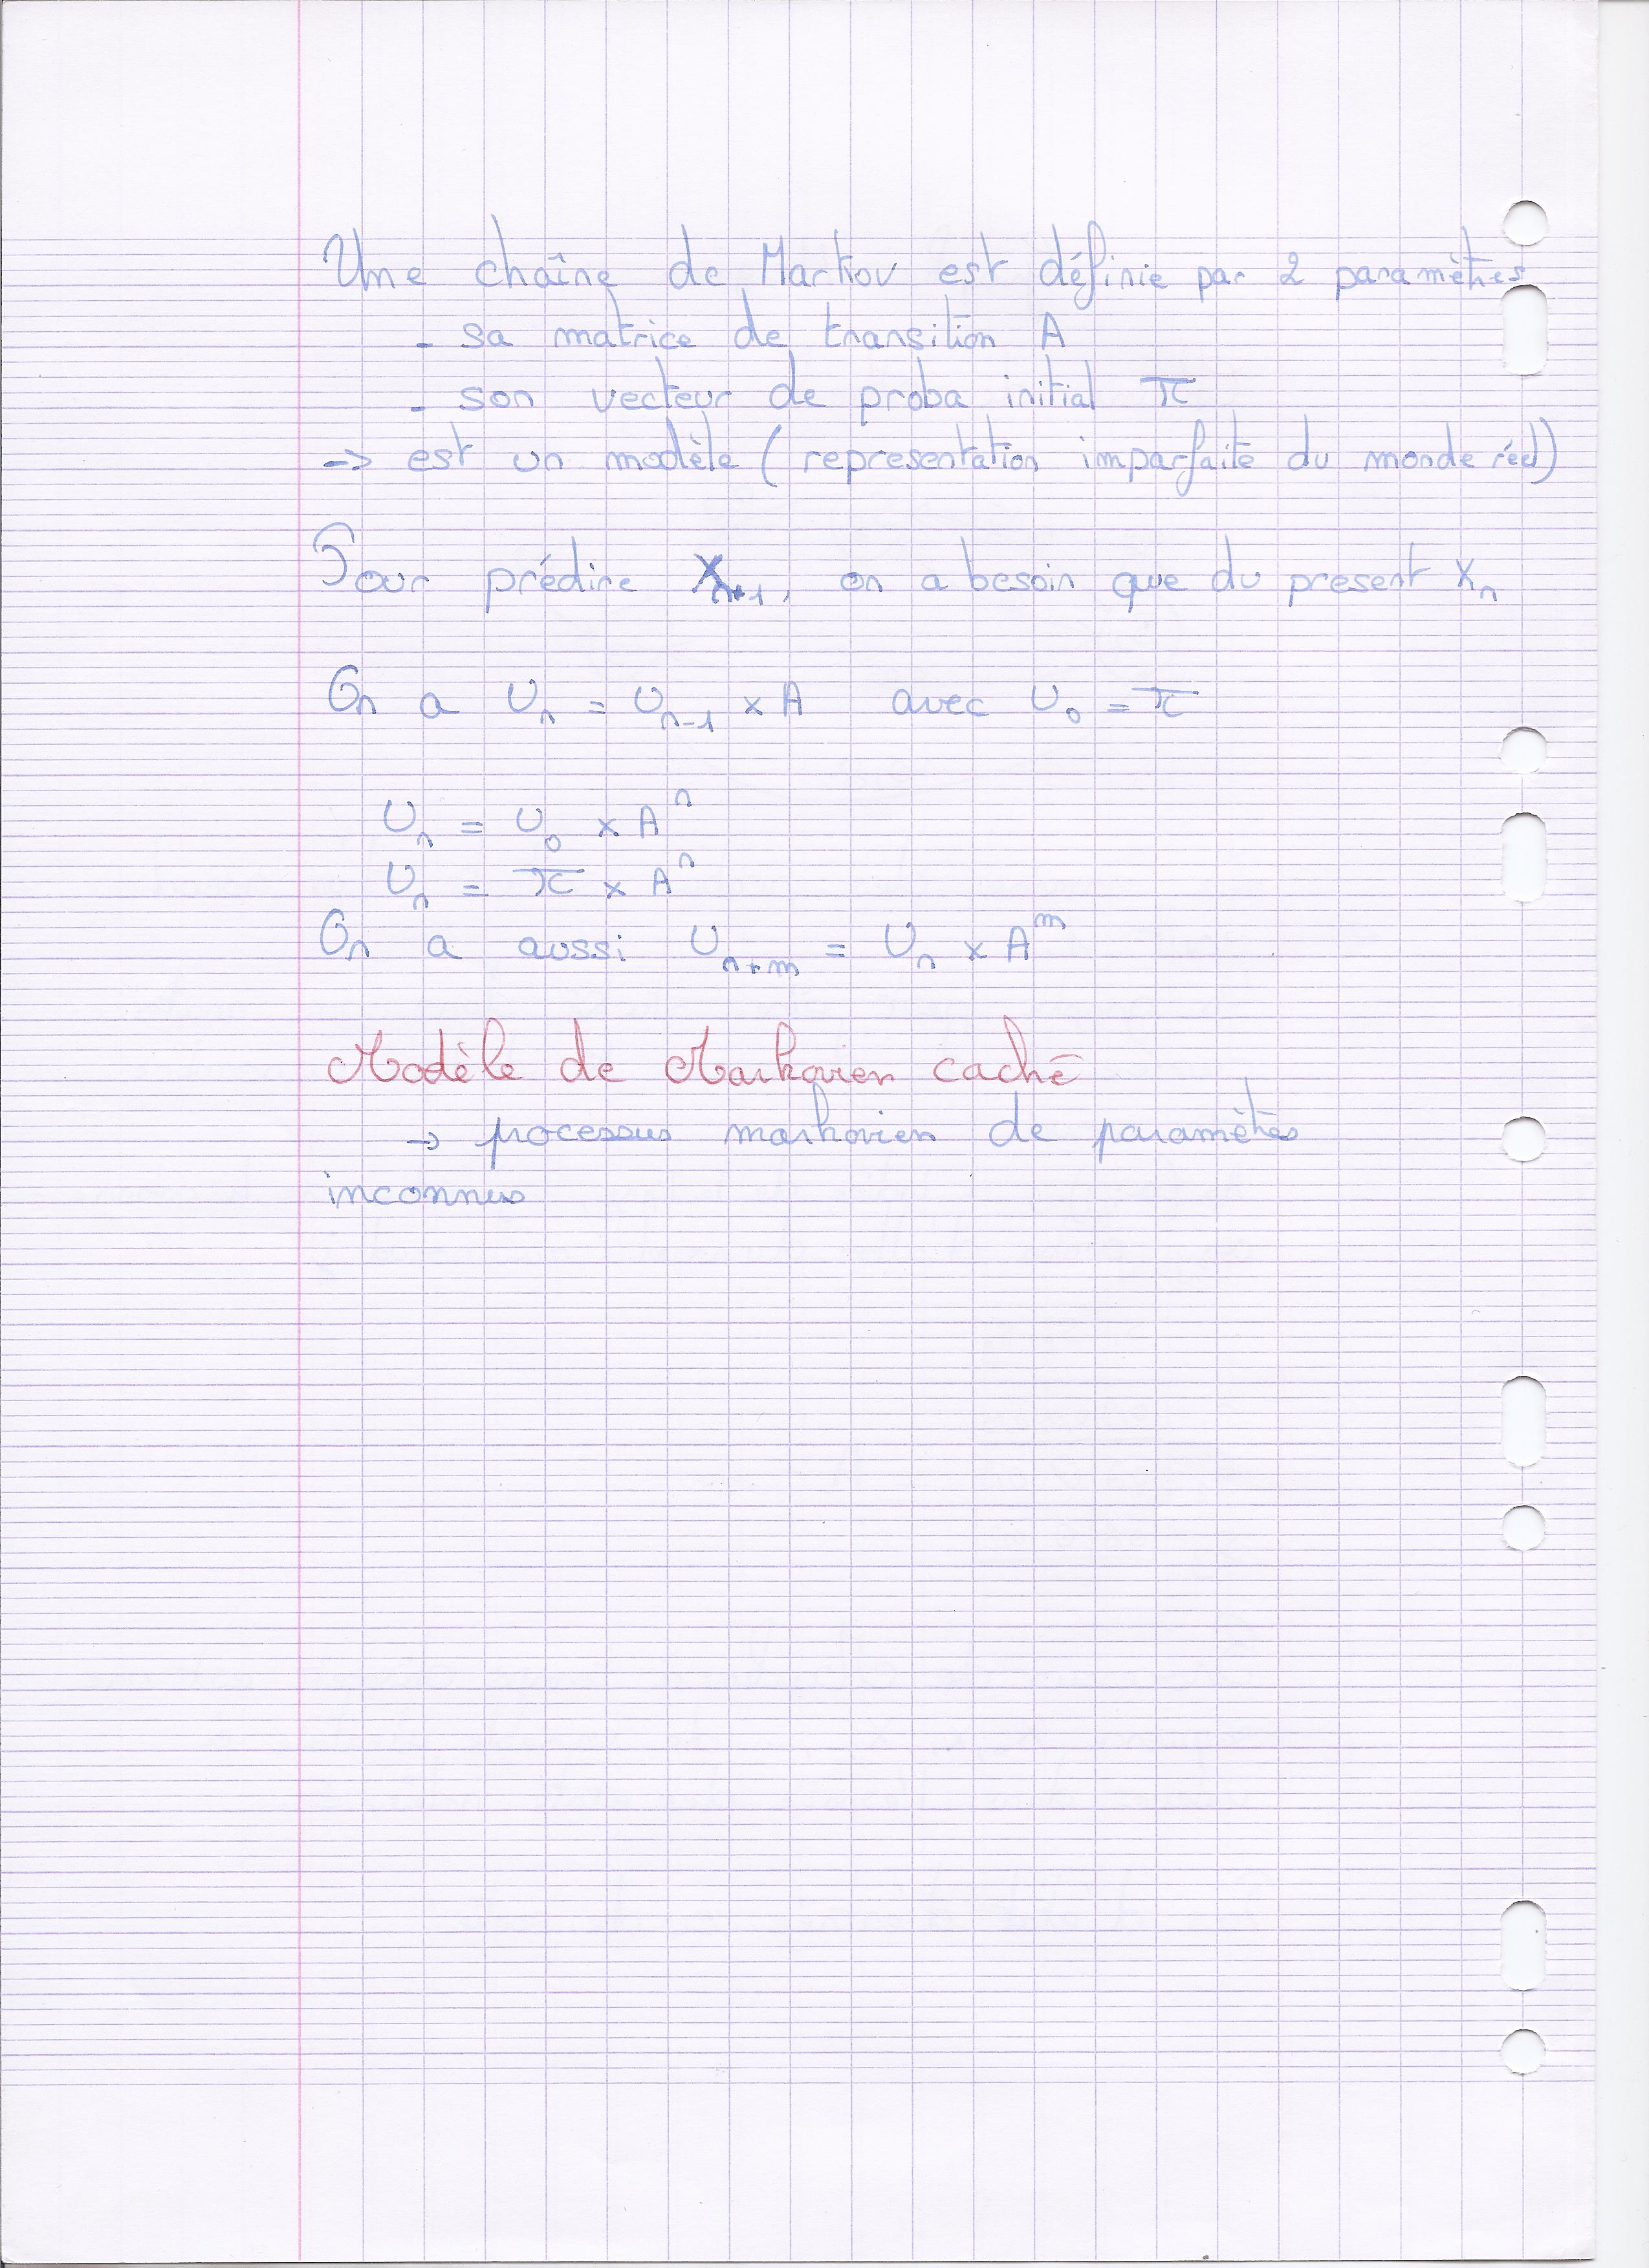 Une chaîne de Markov est définie par 2 paramètres
- sa matrice de transition A
- son vecteur de proba initial π
-> est un modèle (representation imparfaite du monde réel)
Pour prédire Xₙ₊₁, on a besoin que du present Xₙ
On a Uₙ = Uₙ₋₁ × A avec U₀ = π
Uₙ = U₀ × Aⁿ
Uₙ = π × Aⁿ
On a aussi Uₙ₊ₘ = Uₙ × Aᵐ
Modèle de Markovien caché
→ processus markovien de paramètres
inconnus